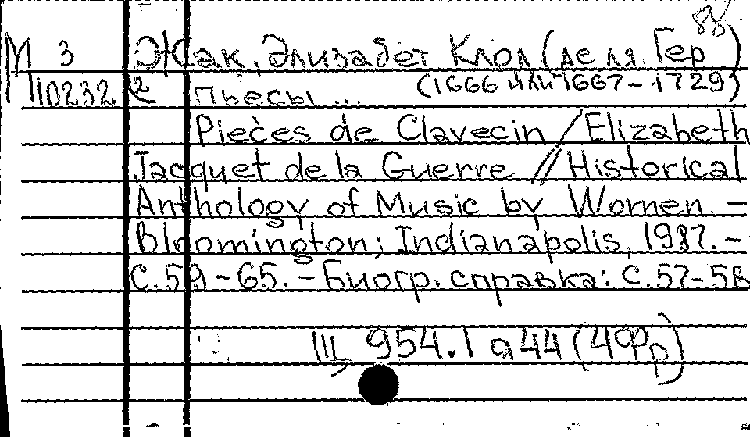 88
М 3 Жак, Элизабет Клод (де ля Гер)
110232 2 пьесы ... (1666 или 1667-1729)
Pièces de Clavecin / Elizabeth
Jacquet de la Guerre // Historical
Anthology of Music by Women -
Bloomington; Indianapolis, 1987. -
С. 59-65. - Биогр. справка: С. 57-58
Щ 954.1 а44 (4Фр)